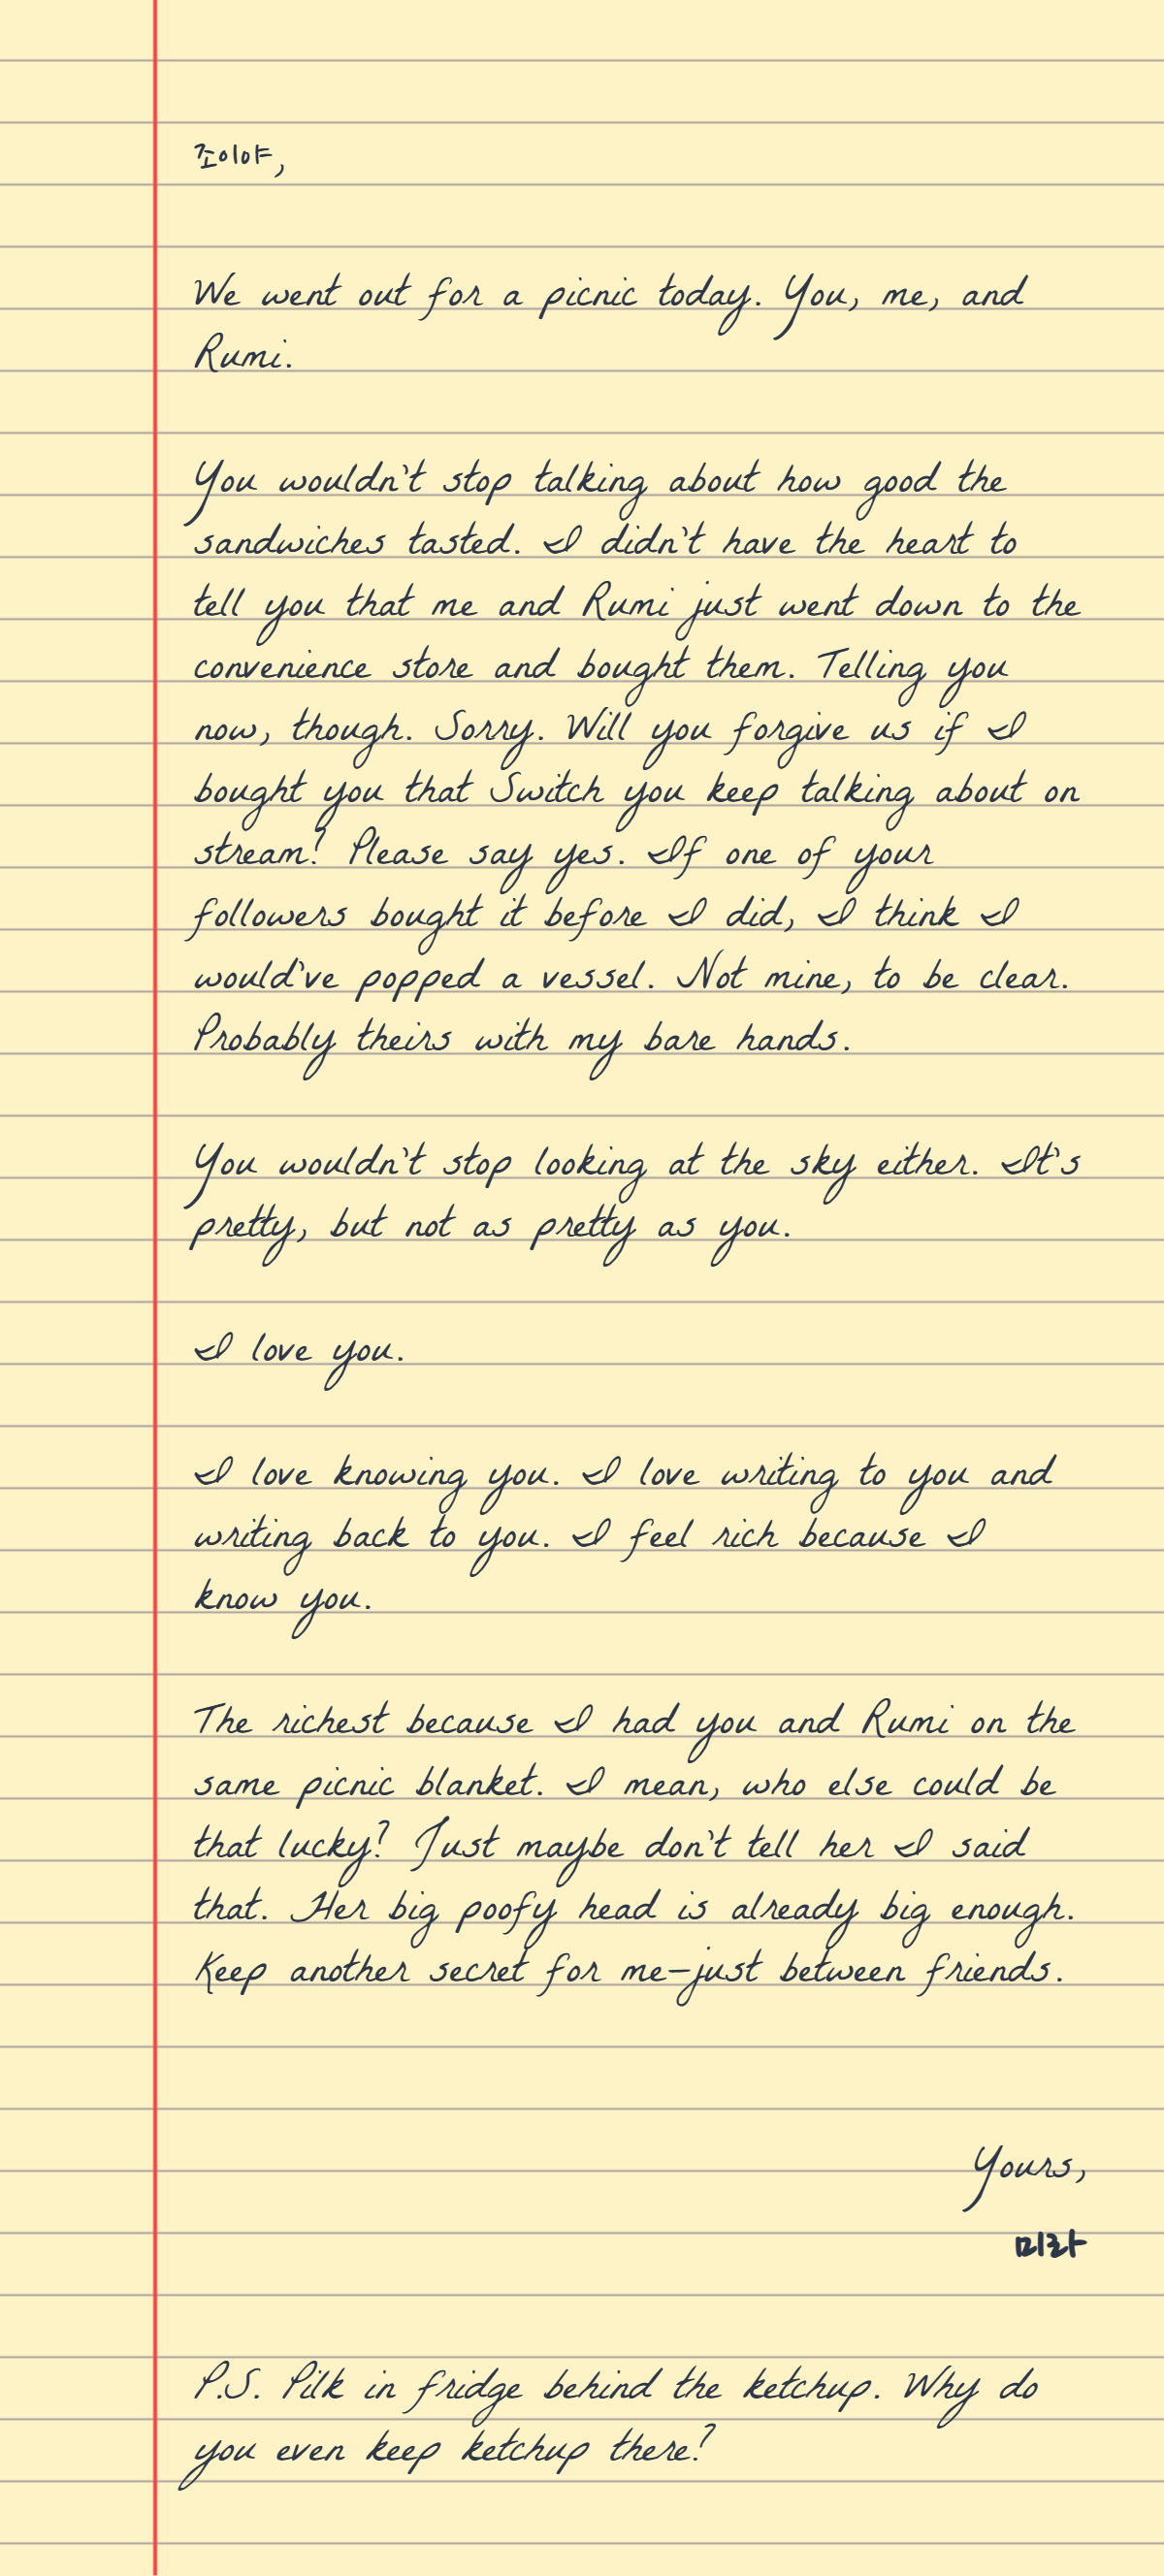 조이야,
We went out for a picnic today. You, me, and
Rumi.
You wouldn't stop talking about how good the
sandwiches tasted. I didn't have the heart to
tell you that me and Rumi just went down to the
convenience store and bought them. Telling you
now, though. Sorry. Will you forgive us if I
bought you that Switch you keep talking about on
stream? Please say yes. If one of your
followers bought it before I did, I think I
would've popped a vessel. Not mine, to be clear.
Probably theirs with my bare hands.
You wouldn't stop looking at the sky either. It's
pretty, but not as pretty as you.
I love you.
I love knowing you. I love writing to you and
writing back to you. I feel rich because I
know you.
The richest because I had you and Rumi on the
same picnic blanket. I mean, who else could be
that lucky? Just maybe don't tell her I said
that. Her big poofy head is already big enough.
Keep another secret for me—just between friends.
Yours,
미라
P.S. Pilk in fridge behind the ketchup. Why do
you even keep ketchup there?